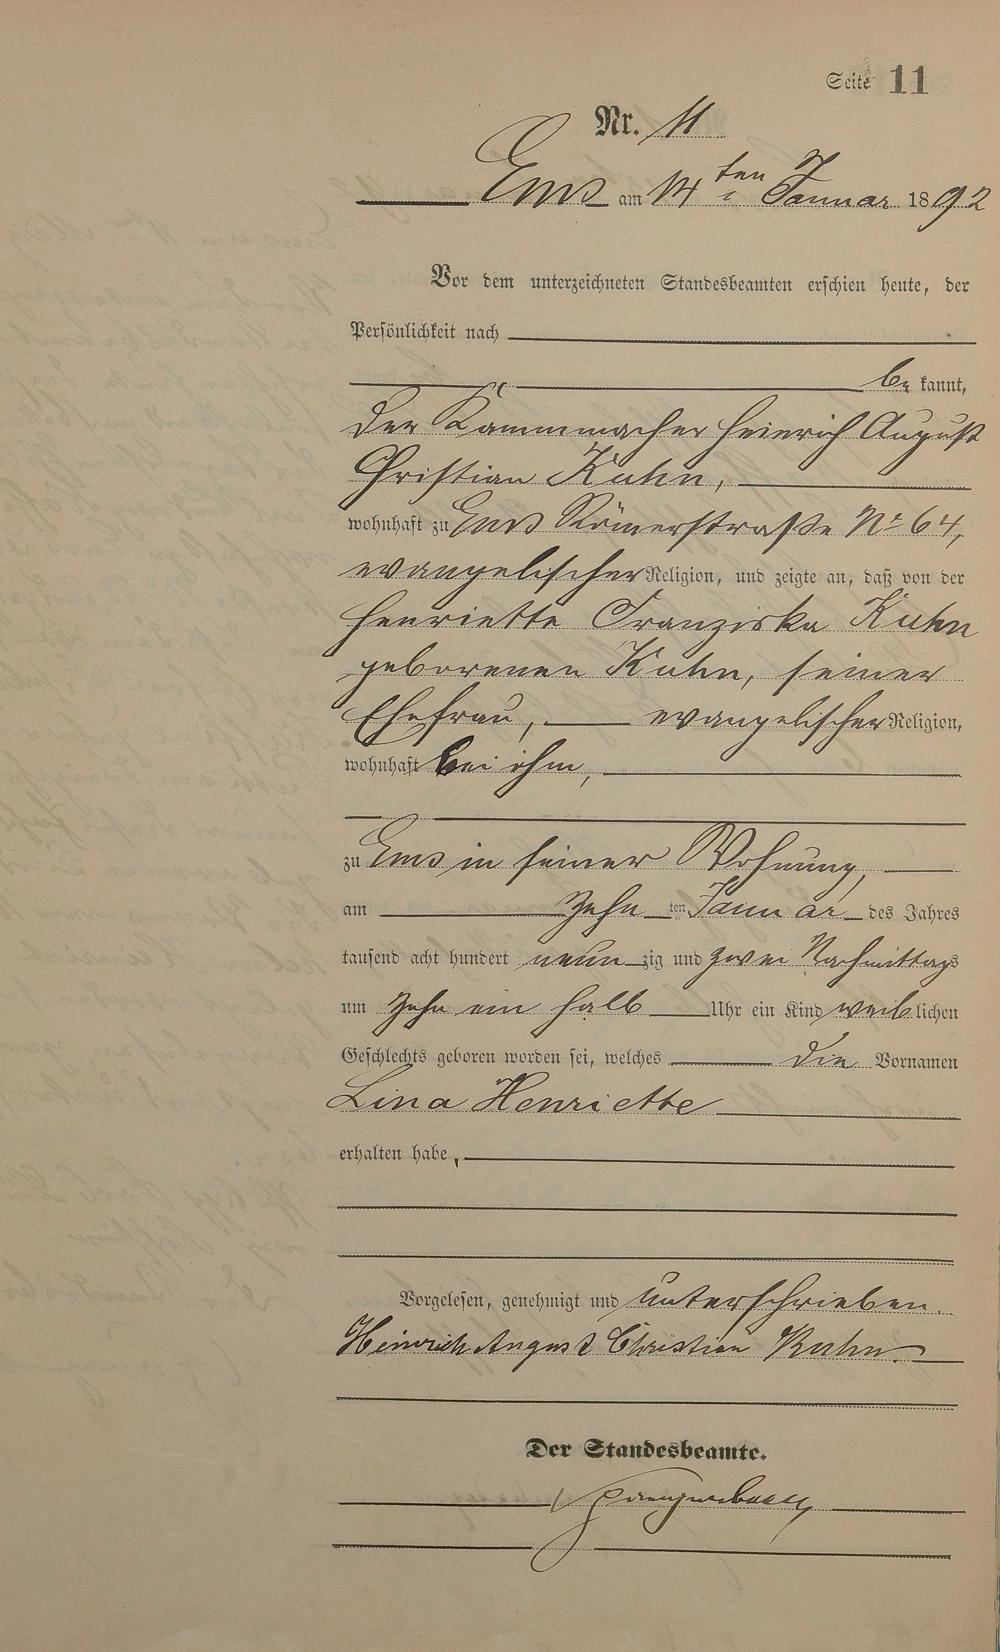 Seite 11
Nr. 11
Ems am 14ten Januar 1892
Vor dem unterzeichneten Standesbeamten erschien heute, der
Persönlichkeit nach
be kannt,
der Kammmacher Heinrich August
Christian Kuhn,
wohnhaft zu Ems Römerstraße No 64,
evangelischer Religion, und zeigte an, daß von der
Henriette Franziska Kuhn
geborenen Kuhn, seiner
Ehefrau, evangelischer Religion,
wohnhaft bei ihm,
zu Ems in seiner Wohnung,
am zehn ten Januar des Jahres
tausend acht hundert neun zig und zwei Nachmittags
um zehn ein halb Uhr ein Kind weib lichen
Geschlechts geboren worden sei, welches die Vornamen
Lina Henriette
erhalten habe,
Vorgelesen, genehmigt und unterschrieben.
Heinrich August Christian Kuhn.
Der Standesbeamte.